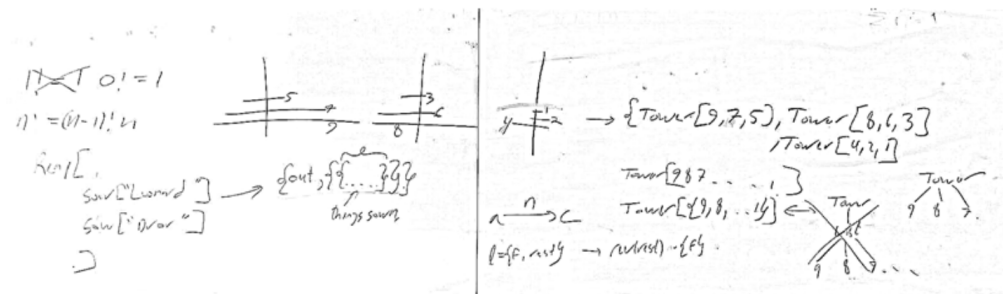 0! = 1
n! = (n-1)! n
Reap[
Sow["Leonard"]
Sow["Dror"]
]
{out, {{.....}}}
e
things sown
5
7
9
3
6
8
1
2
4
→ {Tower[9,7,5], Tower[8,6,3]
, Tower[4,2,1]}
Tower[9 8 7 . . . . . 1]
Tower[{9,8, ...1}]
A n→ C
l={f, rest} → rev(rest) ~ {f}
Tower
List
9 8 7 ...
Tower
9 8 7